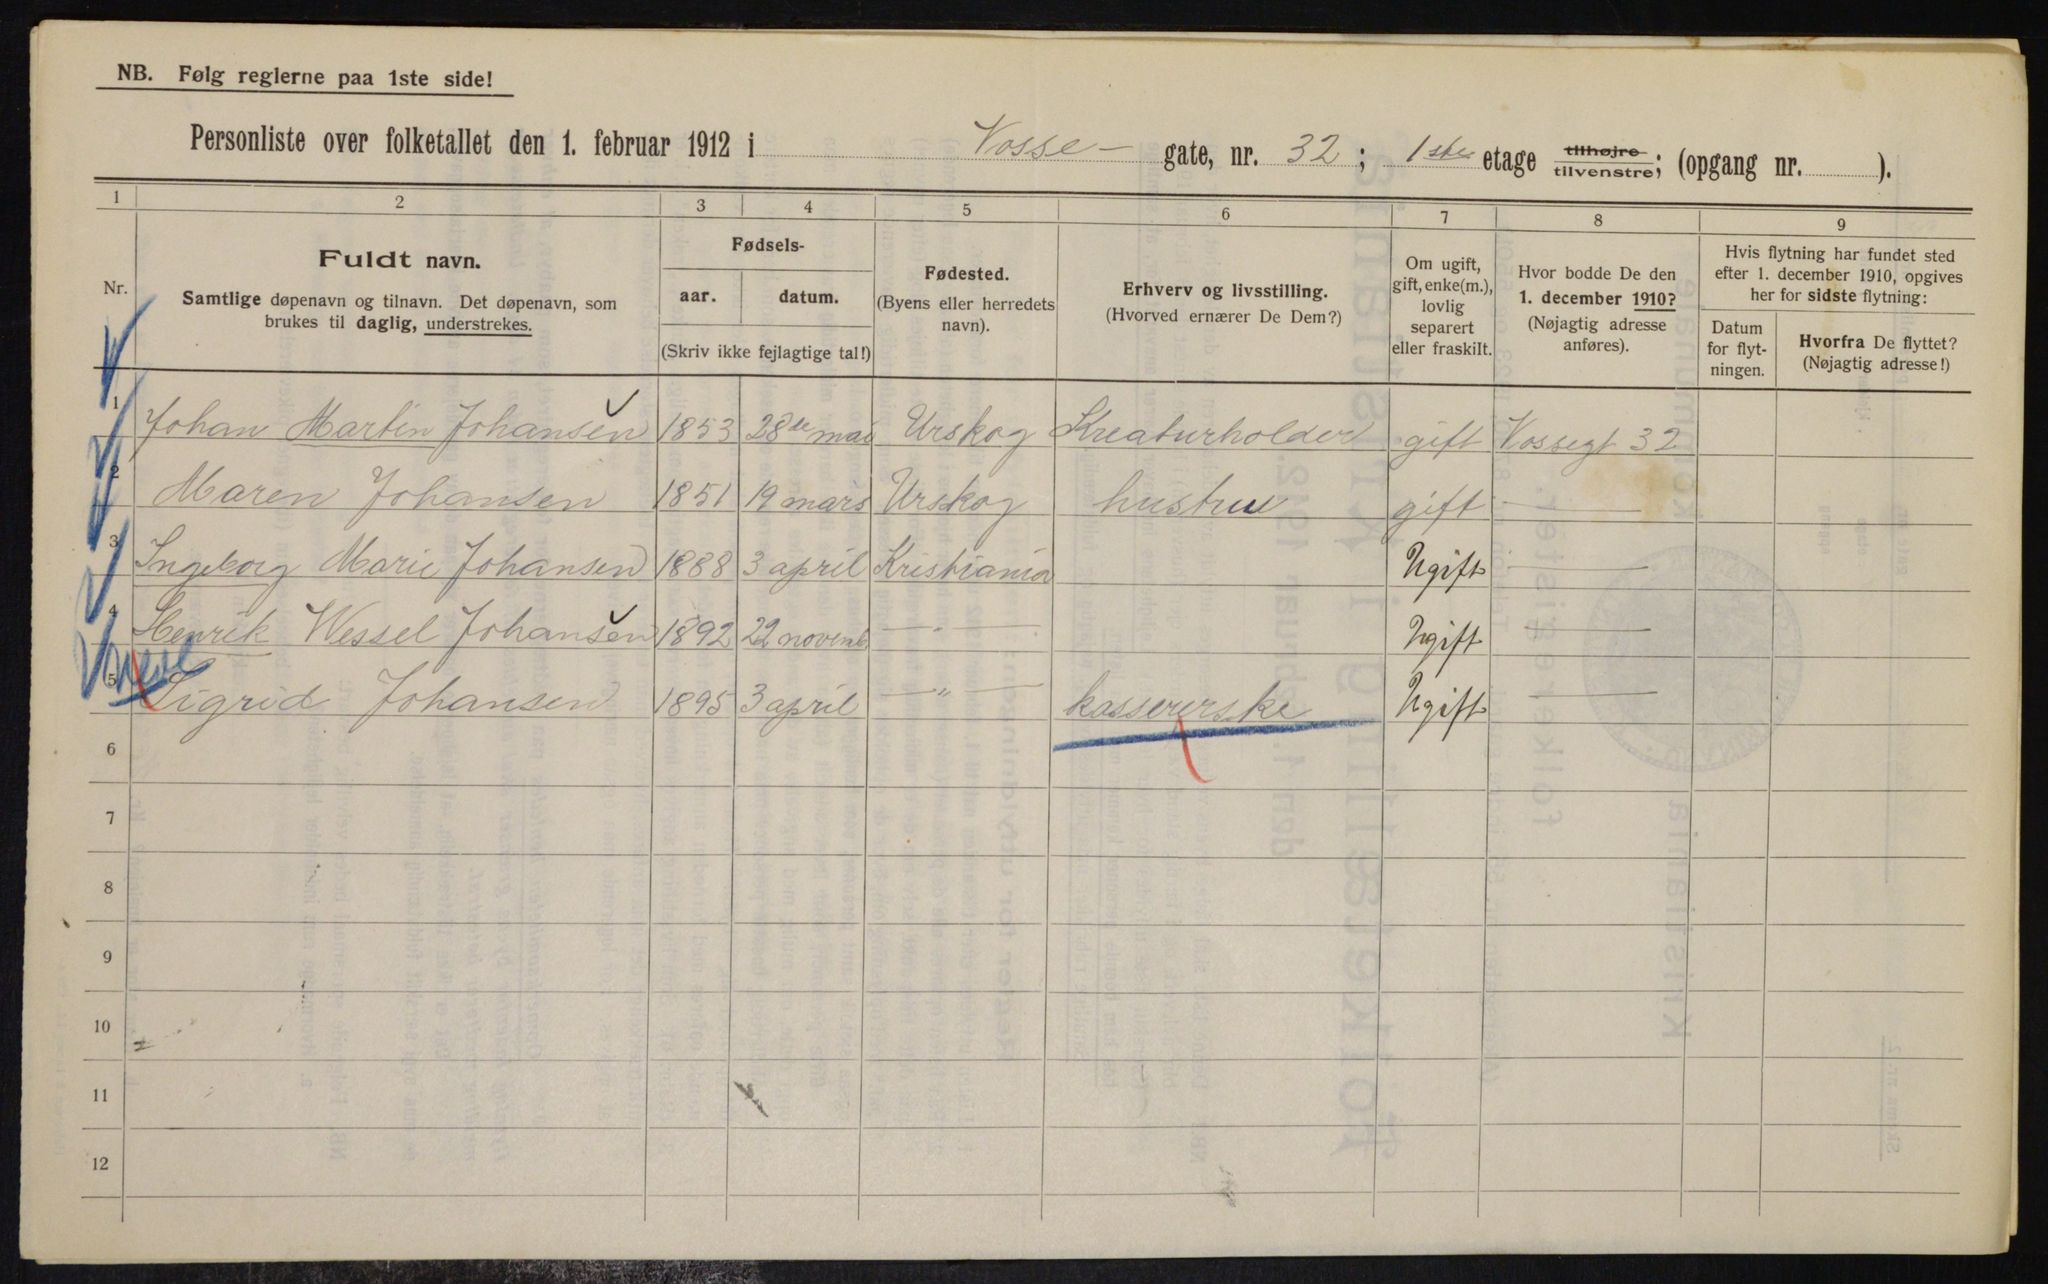 NB. Følg reglerne paa 1ste side!
Personliste over folketallet den 1. februar 1912 i Vosse- gate, nr. 32; 1ste etage tilhøjre tilvenstre; (opgang nr. ).
1 2 3 4 5 6 7 8 9
Nr.
Fuldt navn.
Samtlige døpenavn og tilnavn. Det døpenavn, som
brukes til daglig, understrekes.
Fødsels-
aar. datum.
(Skriv ikke fejlagtige tal!)
Fødested.
(Byens eller herredets
navn).
Erhverv og livsstilling.
(Hvorved ernærer De Dem?)
Om ugift,
gift, enke(m.),
lovlig
separert
eller fraskilt.
Hvor bodde De den
1. december 1910?
(Nøjagtig adresse
anføres).
Hvis flytning har fundet sted
efter 1. december 1910, opgives
her for sidste flytning:
Datum
for flyt-
ningen.
Hvorfra De flyttet?
(Nøjagtig adresse!)
1 Johan Martin Johansen 1853 28de mai Urskog Kreaturholder gift Vossegt 32
2 Maren Johansen 1851 19 mars Urskog hustru gift —
3 Ingeborg Marie Johansen 1888 3 april Kristiania Ugift —
4 Henrik Wessel Johansen 1892 22 novemb. — " — Ugift —
5 Sigrid Johansen 1895 3 april — " — kassererske Ugift —
6
7
8
9
10
11
12